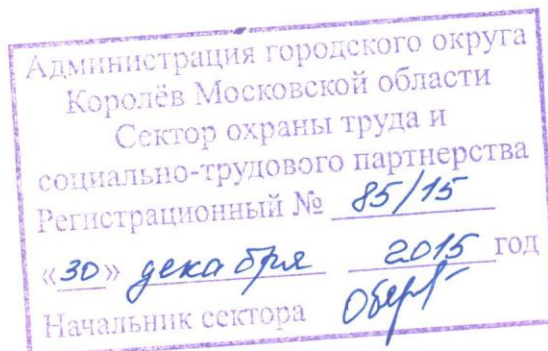 Администрация городского округа
Королёв Московской области
Сектор охраны труда и
социально-трудового партнерства
Регистрационный № 85/15
«30» декабря 2015 год
Начальник сектора